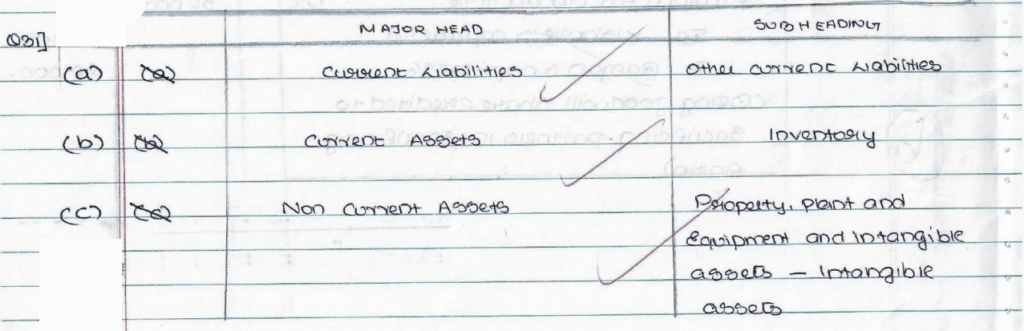 MAJOR HEAD SUB HEADING
Q31]
(a) Current Liabilities Other current Liabilities
(b) Current Assets Inventory
(c) Non Current Assets Property, Plant and
Equipment and Intangible
assets – Intangible
assets